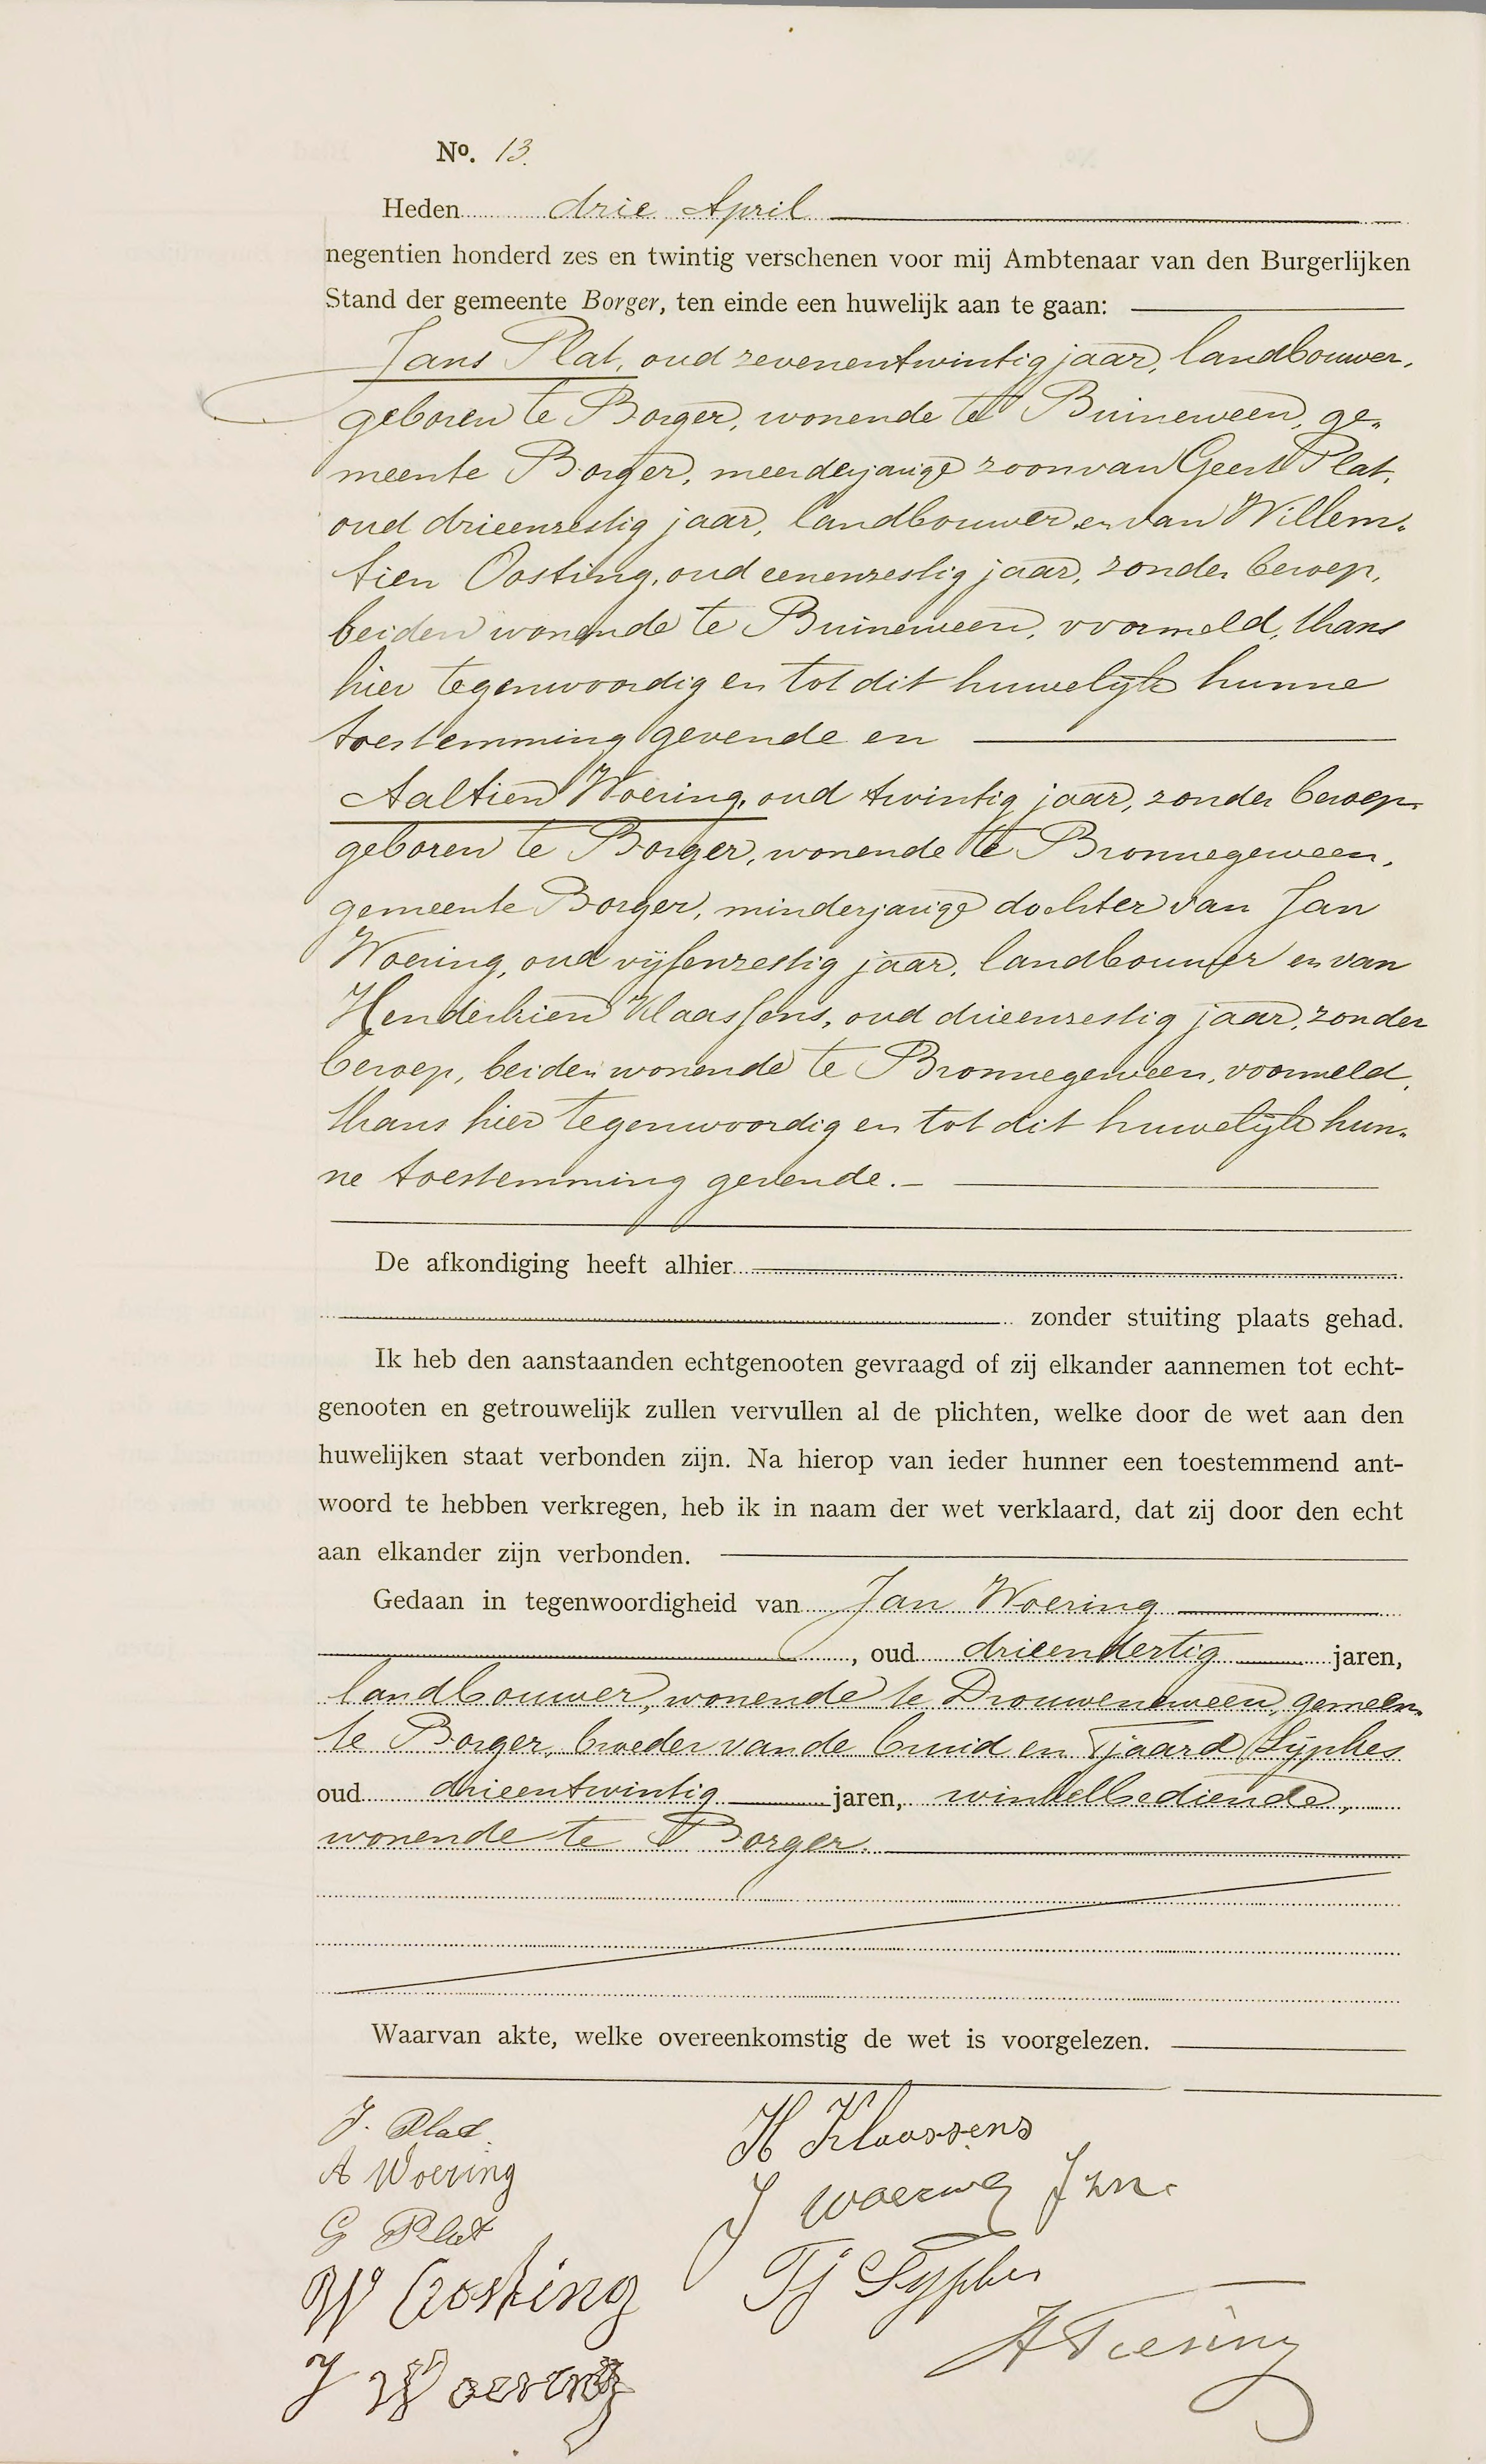 No. 13.
Heden drie April
negentien honderd zes en twintig verschenen voor mij Ambtenaar van den Burgerlijken
Stand der gemeente Borger, ten einde een huwelijk aan te gaan:
Jans Plat, oud zevenentwintig jaar, landbouwer,
geboren te Borger, wonende te Buinerveen, ge-
meente Borger, meerderjarige zoon van Geert Plat,
oud drieenzestig jaar, landbouwer en van Willem-
tien Oosting, oud eenenzestig jaar, zonder beroep,
beiden wonende te Buinerveen, voormeld, thans
hier tegenwoordig en tot dit huwelijk hunne
toestemming gevende en
Aaltien Woering, oud twintig jaar, zonder beroep,
geboren te Borger, wonende te Bronnegerveen,
gemeente Borger, minderjarige dochter van Jan
Woering, oud vijfenzestig jaar, landbouwer en van
Henderkien Klaassens, oud drieenzestig jaar, zonder
beroep, beiden wonende te Bronnegerveen, voormeld,
thans hier tegenwoordig en tot dit huwelijk hun-
ne toestemming gevende.-
De afkondiging heeft alhier
zonder stuiting plaats gehad.
Ik heb den aanstaanden echtgenooten gevraagd of zij elkander aannemen tot echt-
genooten en getrouwelijk zullen vervullen al de plichten, welke door de wet aan den
huwelijken staat verbonden zijn. Na hierop van ieder hunner een toestemmend ant-
woord te hebben verkregen, heb ik in naam der wet verklaard, dat zij door den echt
aan elkander zijn verbonden.
Gedaan in tegenwoordigheid van Jan Woering
, oud drieendertig jaren,
landbouwer, wonende te Drouwenerveen, gemeen-
te Borger, broeder van de bruid en Tjaard Sijpkes
oud drieentwintig jaren, winkelbediende,
wonende te Borger.
Waarvan akte, welke overeenkomstig de wet is voorgelezen.
J. Plat
A Woering
G Plat
W Oosting
J Woering
H Klaassens
J Woering Jzn.
Tj Sypkes